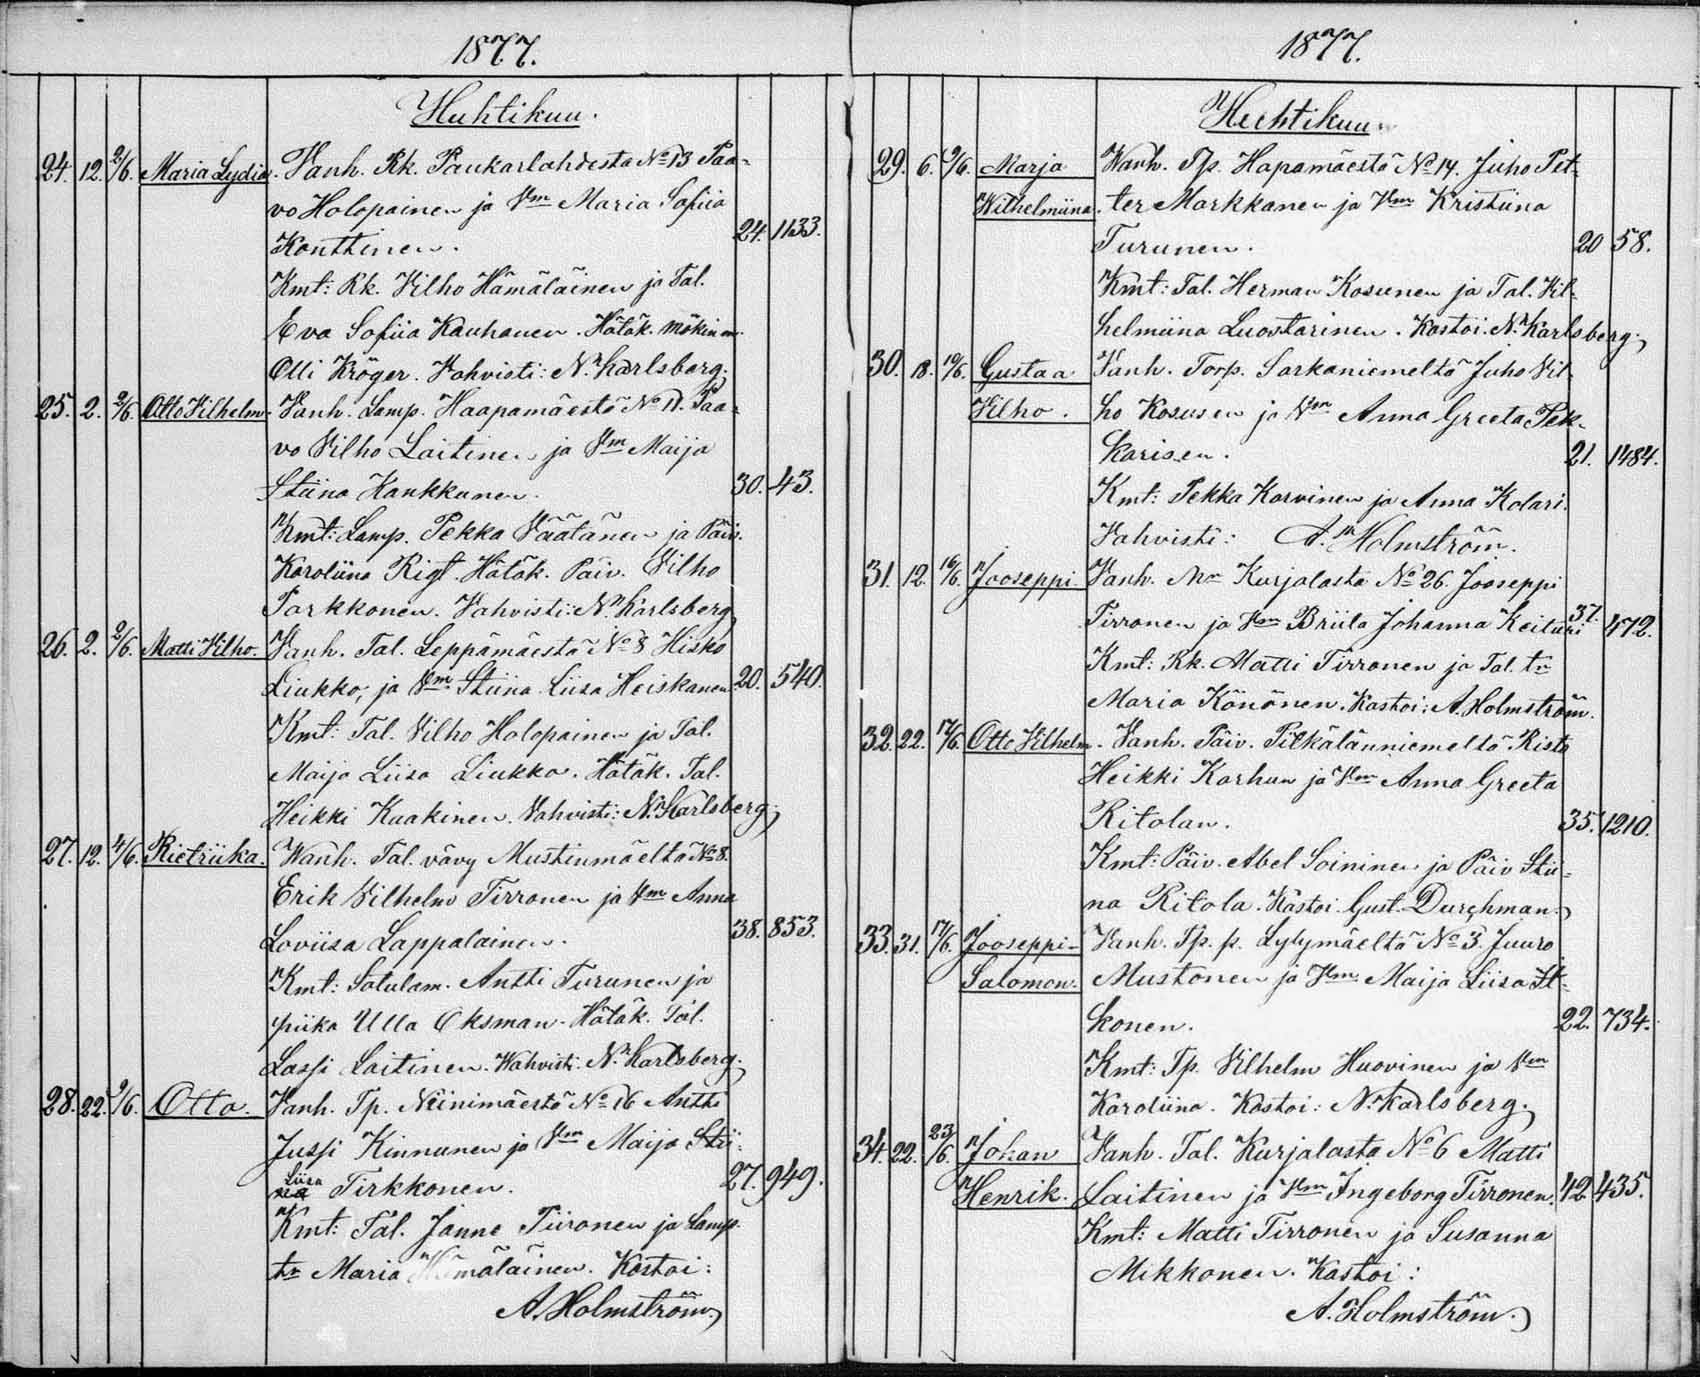 1877.
Huhtikuu.
24. 12. 2/6. Maria Lydia. Vanh. Rk. Paukarlahdesta No 13 Paa-
vo Holopainen ja Vm Maria Sofiia
Konttinen. 24. 1133.
Kmt: Rk. Vilho Hämäläinen ja Tal.
Eva Sofiia Kauhanen. Hätäk. mökin em.
Olli Kröger. Vahvisti: N. Karlsberg.
25. 2. 2/6. Otto Vilhelm. Vanh. Lamp. Haapamäestä No 11. Paa-
vo Vilho Laitinen ja Vm Maija
Stiina Kankkunen. 30. 43.
Kmt: Lamp. Pekka Väätänen ja Päiv.
Karoliina Rigt. Hätäk. Päiv. Vilho
Parkkonen. Vahvisti: N. Karlsberg.
26. 2. 2/6. Matti Vilho. Vanh. Tal. Leppämäestä No 8 Hisko
Liukko, ja Vm Stiina Liisa Heiskanen. 20. 540.
Kmt: Tal. Vilho Holopainen ja Tal.
Maija Liisa Liukko. Hätäk. Tal.
Heikki Kaakinen. Vahvisti: N. Karlsberg.
27. 12. 4/6. Rietriika. Wanh. Tal. vävy Mustinmäeltä No 8.
Erik Vilhelm Tirronen ja Vm Anna
Loviisa Lappalainen. 38. 853.
Kmt: Sotulam. Antti Turunen ja
piika Ulla Oksman. Hätäk. Tal.
Lassi Laitinen. Wahvisti: N. Karlsberg.
28. 22. 9/6. Otto. Vanh. Tp. Niinimäestä No 16 Antti
Jussi Kinnunen ja Vm Maija Stii-
Liisa
na Tirkkonen. 27. 949.
Kmt: Tal. Janne Tiironen ja Lamp.
tr Maria Hämäläinen. Kastoi:
A. Holmström.
1877.
Huhtikuu.
29. 6. 9/6. Marja Wanh. Tp. Hapamäestä No 14. Juho Pet-
Wilhelmiina. ter Markkanen ja Vm Kristiina
Turunen. 20 58.
Kmt: Tal. Herman Kosunen ja Tal. Vil-
helmiina Luostarinen. Kastoi. N. Karlsberg.
30. 18. 10/6. Gustaa Vanh. Torp. Sarkaniemeltä Juho Vil-
Vilho. ho Kosusen ja Vm Anna Greeta Pek-
karisen. 21. 1484.
Kmt: Pekka Korvinen ja Anna Kolari.
Vahvisti: A. Holmström.
31. 12. 16/6. Jooseppi Vanh. Mm Kurjalasta No 26. Jooseppi
Tirronen ja Vm Briita Johanna Keituri 37. 472.
Kmt: Rk. Matti Tirronen ja Tal. tr
Maria Könönen. Kastoi: A. Holmström.
32. 22. 17/6. Otto Vilhelm. Vanh. Päiv. Pitkälänniemeltä Risto
Heikki Karhun ja Vm Anna Greeta
Ritolan. 35. 1210.
Kmt: Päiv. Abel Soininen ja Päiv Stii-
na Ritola. Kastoi Gust. Durchman.
33. 31. 17/6. Jooseppi- Vanh. Tp. p. Lylymäeltä No 3. Juuro
Salomon. Mustonen ja Vm Maija Liisa It-
konen. 22. 734.
Kmt: Tp. Vilhelm Huovinen ja Vm
Karoliina. Kastoi: N. Karlsberg.
34. 22. 23/6. Johan Vanh. Tal. Kurjalasta No 6 Matti
Henrik. Laitinen ja Vm Ingeborg Tirronen. 42. 435.
Kmt: Matti Tirronen ja Susanna
Mikkonen. Kastoi:
A. Holmström.